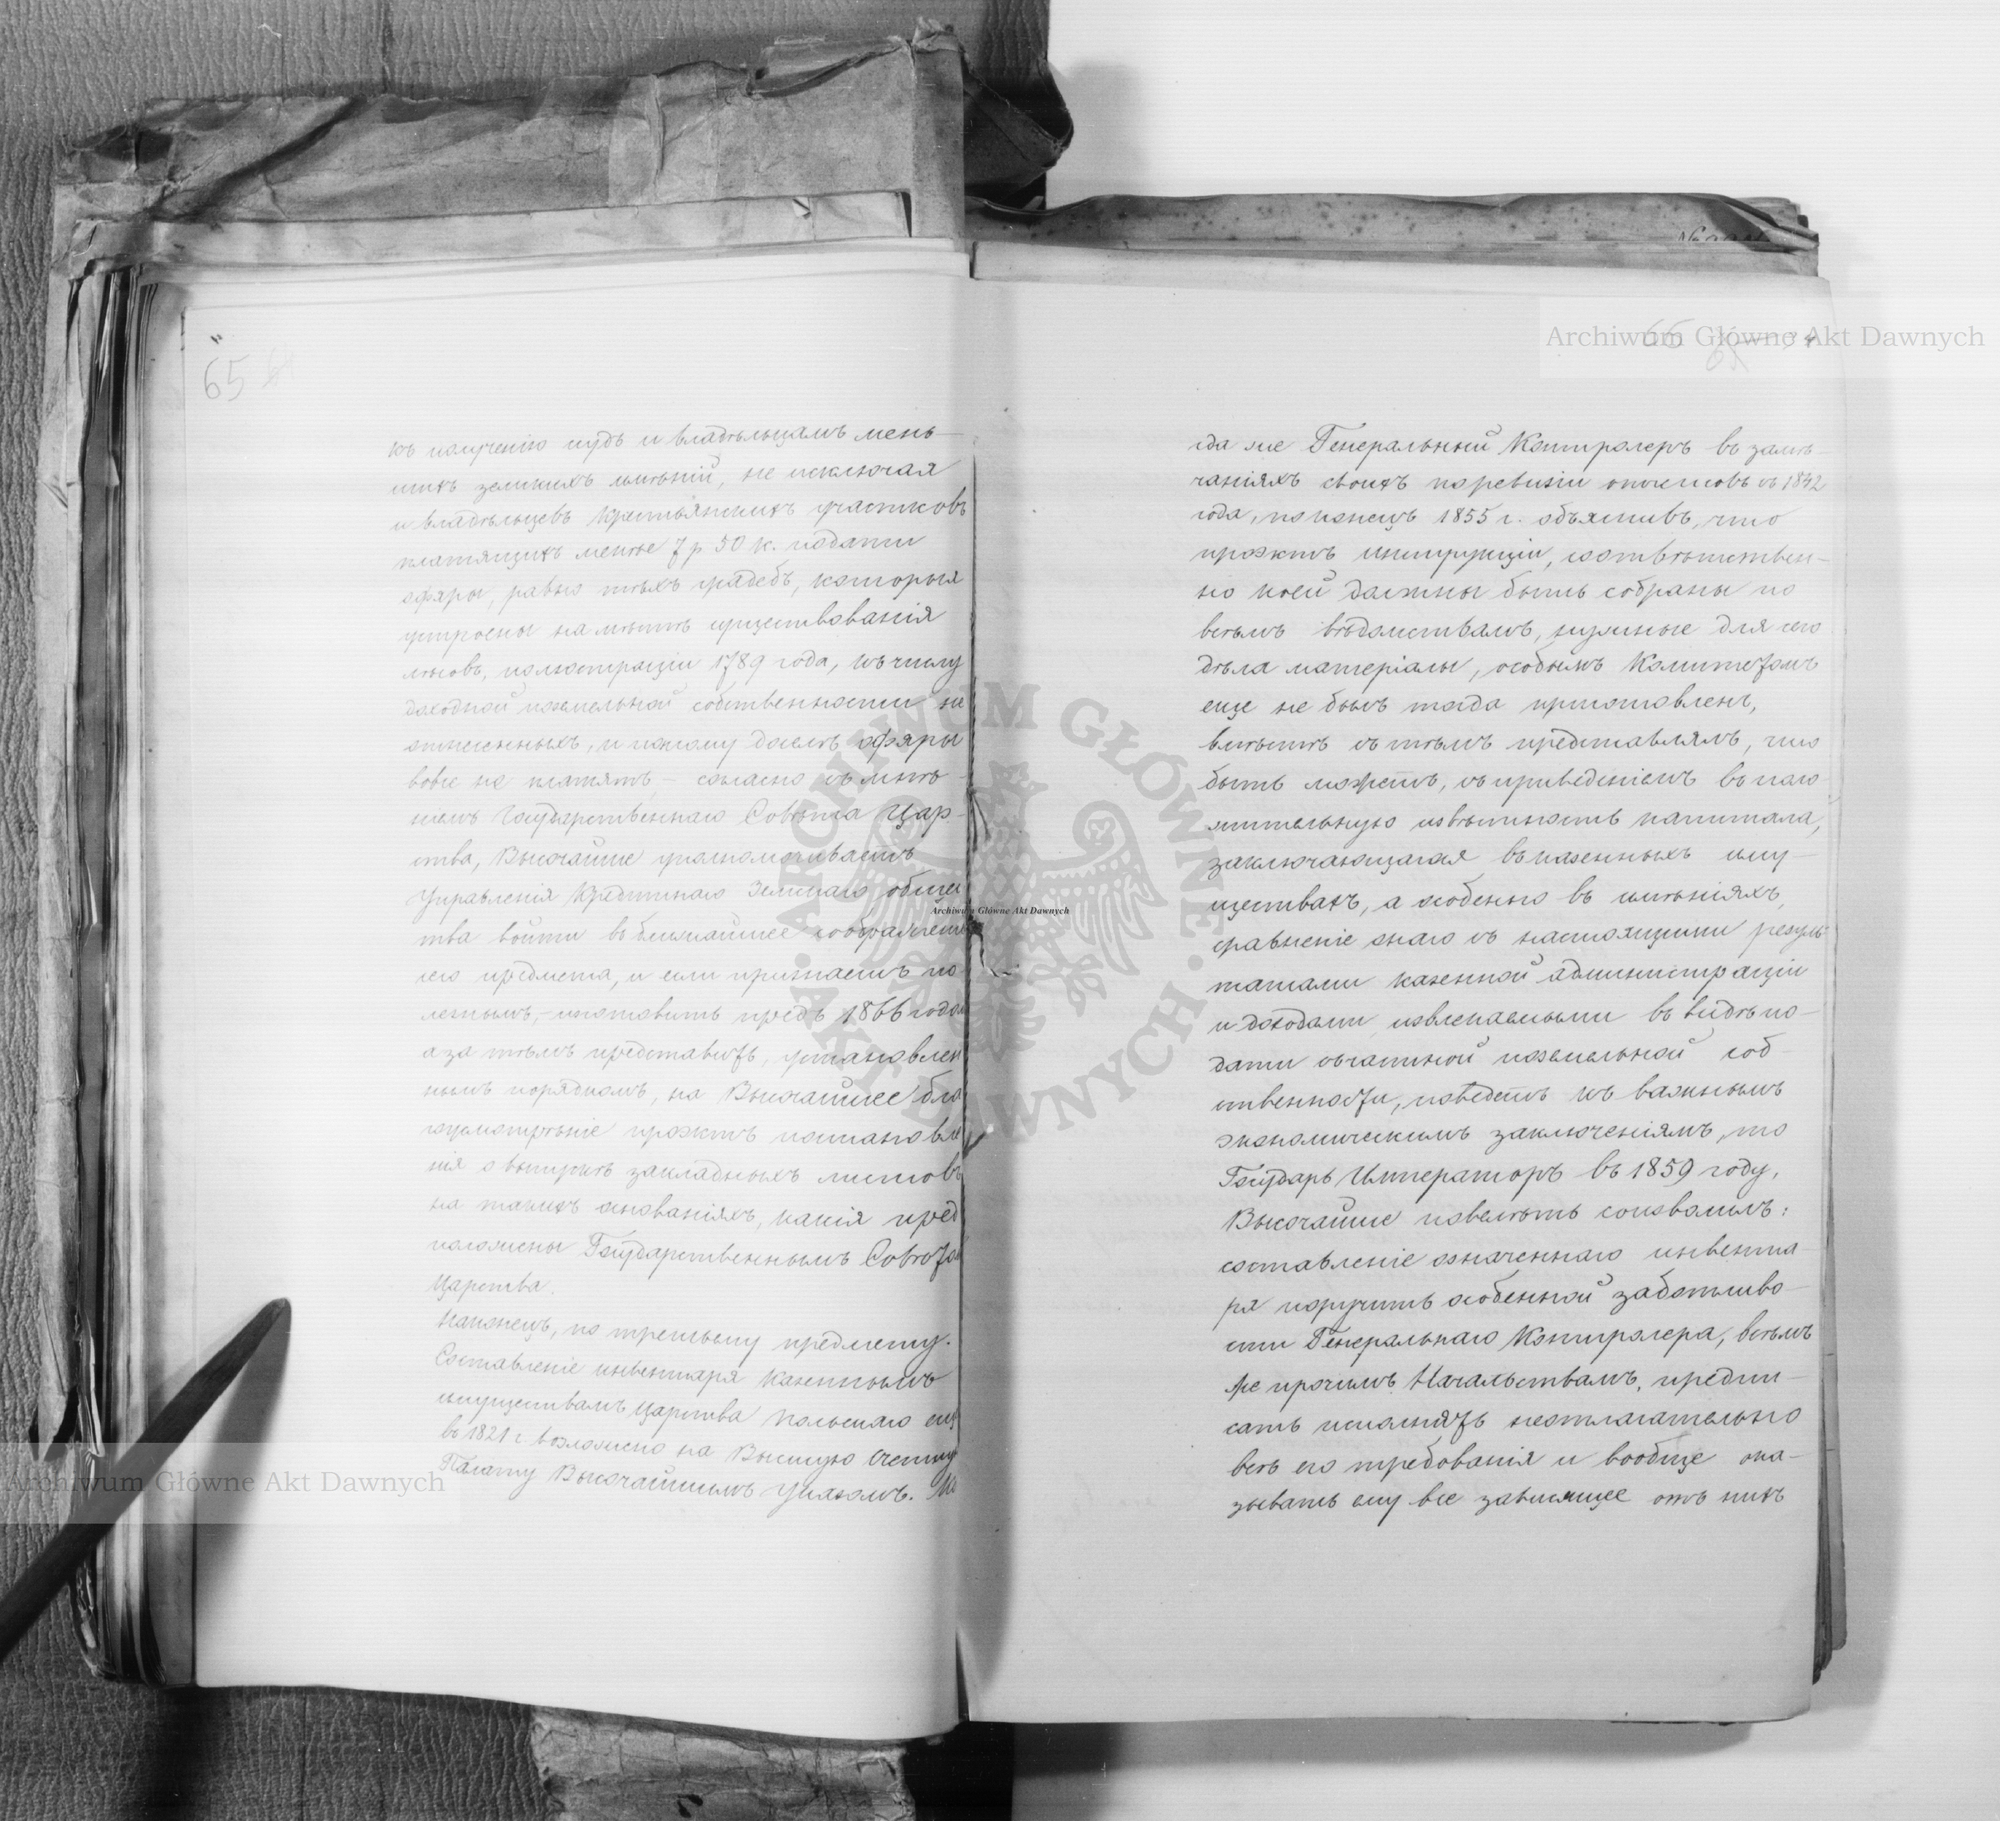 65
къ полученію ссудъ и владѣльцамъ мень-
шихъ земскихъ имѣній, не исключая
и владѣльцевъ крестьянскихъ участковъ
платящихъ менѣе 7 р 50 к. подати
офяры, равно тѣхъ усадебъ, которыя
устроены на мѣстѣ существованія
лѣсовъ, по люстраціи 1789 года, къ числу
доходной поземельной собственности не
отнесенныхъ, и потому доселѣ офяры
вовсе не платятъ, – согласно съ мнѣ-
ніемъ Государственнаго Совѣта Цар-
ства, Высочайше уполномочиваетъ
Управленія Кредитнаго Земскаго общес
тва войти въ ближайшее соображеніе
сего предмета, и если признаетъ по
лезнымъ, – изготовить предъ 1866 годом
а за тѣмъ представить, установлен
нымъ порядкомъ, на Высочайшее бла
гоусмотрѣніе проэктъ постановле
нія о выпускѣ закладныхъ листовъ
на такихъ основаніяхъ, какія пред
положены Государственнымъ Совѣтом
Царства.
Наконецъ, по третьему предмету.
Составленіе инвентаря казеннымъ
имуществамъ Царства Польскаго еще
въ 1821 г. возложено на Высшую Счетную
Палату Высочайшимъ Указомъ. Ко
66
гда же Генеральный Контролеръ въ замѣ-
чаніяхъ своихъ по ревизіи отчетовъ съ 1842
года, по конецъ 1855 г. объяснивъ, что
проэктъ инструкціи, соотвѣтствен-
но коей должны быть собраны по
всѣмъ вѣдомствамъ, нужные для сего
дѣла матеріалы, особымъ Комитетомъ
еще не былъ тогда приготовленъ,
вмѣстѣ съ тѣмъ представлялъ, что
быть можетъ, съ приведеніемъ въ поло-
жительную извѣстность капитала,
заключающагося въ казенныхъ иму-
ществахъ, а особенно въ имѣніяхъ,
сравненіе онаго съ настоящими резуль
татами казенной администраціи
и доходами извлекаемыми въ видѣ по-
дати съ частной поземельной соб-
ственности, поведетъ къ важнымъ
экономическимъ заключеніямъ, то
Государь Императоръ въ 1859 году,
Высочайше повелѣть соизволилъ:
составленіе означеннаго инвента-
ря поручить особенной заботливо-
сти Генеральнаго Контролера, всѣмъ
же прочимъ Начальствамъ, предпи-
сать исполнять неотлагательно
всѣ его требованія и вообще ока-
зывать ему все зависящее отъ нихъ
Archiwum Główne Akt Dawnych
Archiwum Główne Akt Dawnych
Archiwum Główne Akt Dawnych
ARCHIWUM GŁÓWNE AKT DAWNYCH